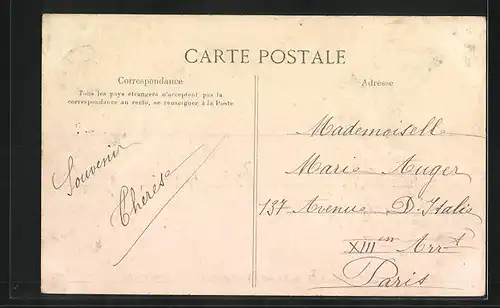 CARTE POSTALE
Correspondance
Tous les pays étrangers n'acceptent pas la
correspondance au recto, se renseigner à la Poste
Souvenir
Thérèse
Adresse
Mademoiselle
Marie Auger
137 Avenue D'Italie
XIII en Arrt
Paris